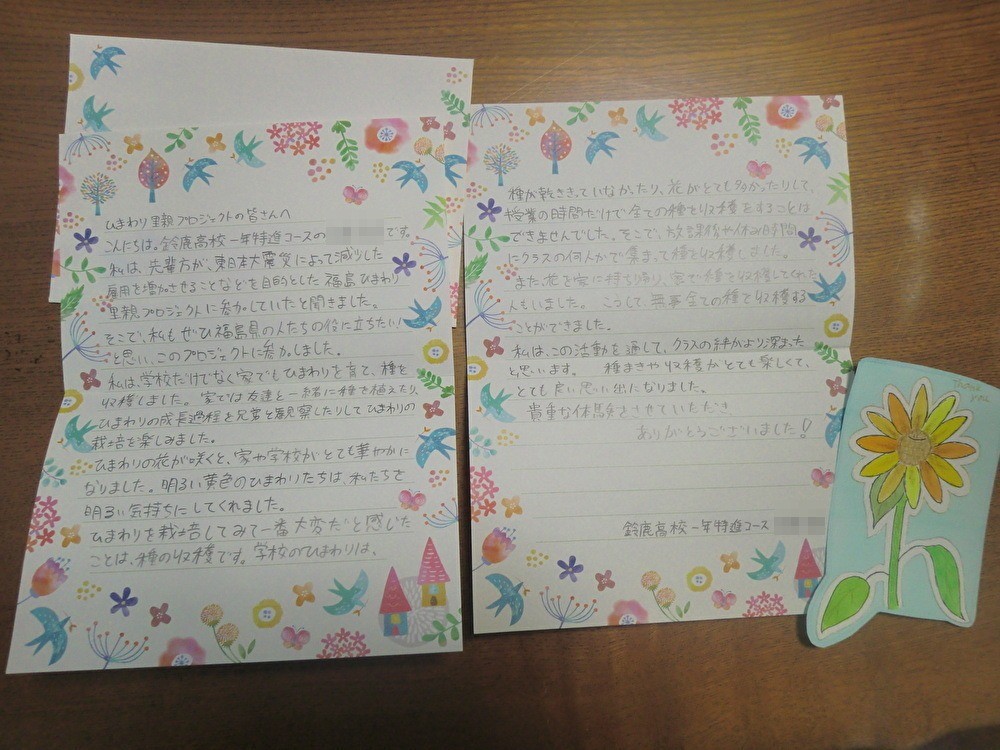 ひまわり里親プロジェクトの皆さんへ
こんにちは。鈴鹿高校一年特進コースの です。
私は、先輩方が、東日本大震災によって減少した
雇用を増加させることなどを目的とした福島ひまわり
里親プロジェクトに参加していたと聞きました。
そこで、私もぜひ福島県の人たちの役に立ちたい!
と思い、このプロジェクトに参加しました。
私は、学校だけでなく家でもひまわりを育て、種を
収穫しました。家では友達と一緒に種を植えたり、
ひまわりの成長過程を兄弟と観察したりしてひまわりの
栽培を楽しみました。
ひまわりの花が咲くと、家や学校がとても華やかに
なりました。明るい黄色のひまわりたちは、私たちを
明るい気持ちにしてくれました。
ひまわりを栽培してみて一番大変だと感じた
ことは、種の収穫です。学校のひまわりは、
種が乾ききっていなかったり、花がとても多かったりして、
授業の時間だけで全ての種を収穫をすることは
できませんでした。そこで、放課後や休み時間
にクラスの何人かで集まって種を収穫しました。
また、花を家に持ち帰り、家で種を収穫してくれた
人もいました。こうして、無事全ての種を収穫する
ことができました。
私は、この活動を通して、クラスの絆がより深まった
と思います。種まきや収穫がとても楽しくて、
とても良い思い出になりました。
貴重な体験をさせていただき
ありがとうございました!
鈴鹿高校一年特進コース
Thank
you